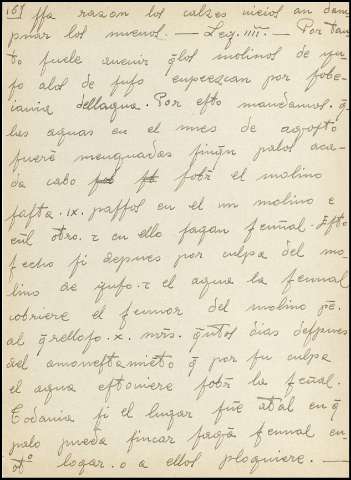 161 ſſa razon los calzes uieios an dam
pnar los nueuos. — Ley. IIII. — Por tan
to ſuele auenir q̄ los molinos de yu
ſo alos de ſuſo enpeezcan por ſobe
iania dellagua. Por eſto mandamos. q̄
las aguas en el mes de agoſto
fuerē menguadas finq̄n palos aca
da cabo ſobr̄ el molino
faſta. ix. paſſos en el un molino e
enl otro. τ en ello fagan ſeñal. Eſto
fecho ſi depues por culpa del mo
lino de yuſo. τ el agua la ſennal
cobriere el ſennor del molino pē.
al q̄relloſo. x. mrs. q̄ntos dias deſpues
del amoneſtamiēto q̄ por ſu culpa
el agua eſtouiere ſobr̄ la ſeñal.
Todauia ſi el lugar fuē atal en q̄
palo pueda fincar fagā ſennal en
ot° logar. o a ellos ploguiere. —